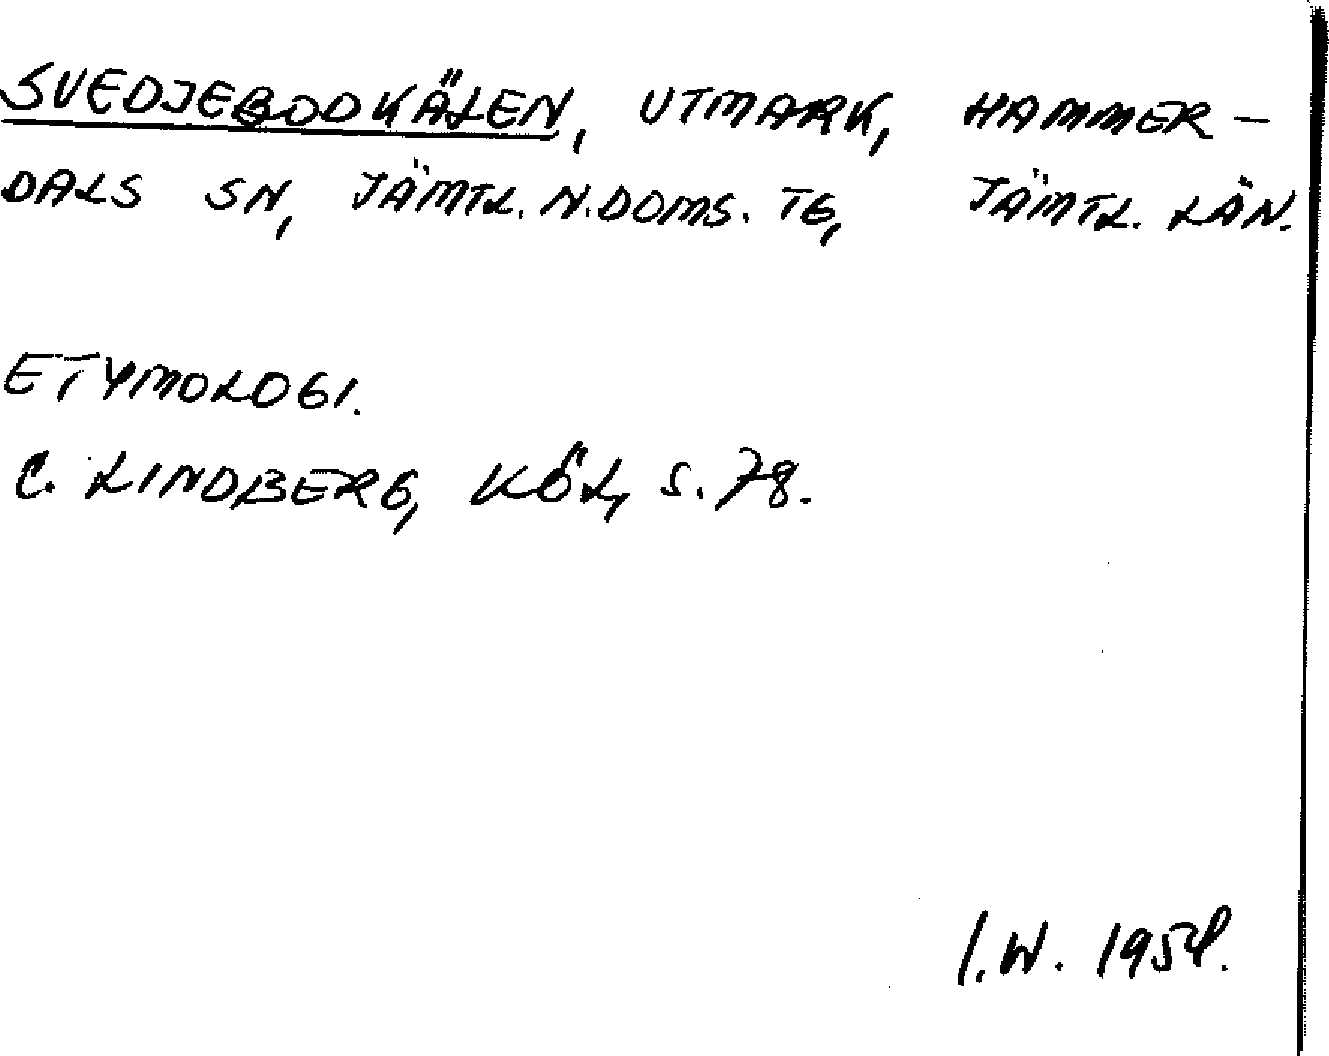 SVEDJEBODKÄLEN, UTMARK, HAMMER-
DALS SN, JÄMTL. N. DOMS. TG, JÄMTL. LÄN.
ETYMOLOGI.
C. LINDBERG, KÖL, S. 78.
I.W. 1954.